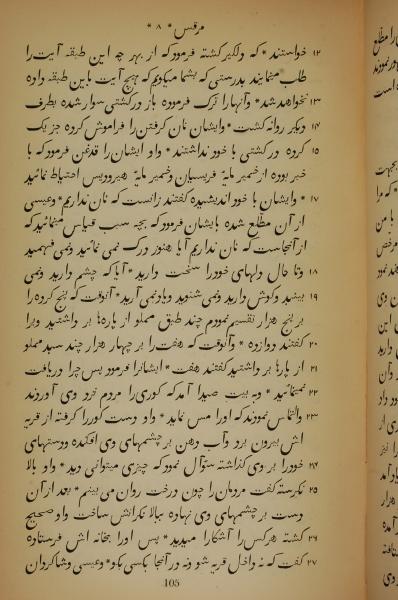 مرقس * ۸ *
۱۲ خواستند * که دلگیر گشته فرمود که از بهر چه این طبقه آیت را
طلب مینمایند بدرستی که بشما میگویم که هیچ آیت باین طبقه داده
۱۳ نخواهد شد * وآنها را ترک فرموده باز در کشتی سوار شده بطرف
۱۴ دیگر روانه گشت * وایشان نان گرفتن را فراموش کرده جز یک
۱۵ کرده در کشتی با خود نداشتند * واو ایشان را قدغن فرمود که با
خبر بوده از خمیر مایهٔ فریسیان وخمیر مایهٔ هیرودیس احتیاط نمائید
۱۷ * وایشان با خود اندیشیده گفتند زانست که نان نداریم * وعیسی
از آن مطلع شده بایشان فرمود که بچه سبب قیاس مینمائید که
از آنجاست که نان نداریم آیا هنوز درک نمی نمائید ونمی فهمید
۱۸ وتا حال دلهای خود را سخت دارید * آیا که چشم دارید ونمی
۱۹ بینید وگوش دارید ونمی شنوید وبیاد نمی آرید * آنوقت که پنج کرده را
بر پنج هزار تقسیم نمودم چند طبق مملو از پارهها بر داشتید ویرا
۲۰ گفتند دوازده * وآنوقت که هفت را بر چهار هزار چند سبد مملو
۲۱ از پارها بر داشتید گفتند هفت * ایشانرا فرمود پس چرا دریافت
۲۲ نمینمائید * وبه بیت صیدا آمد که کوری را مردم نزد وی آوردند
۲۳ والتماس نمودند که اورا مس نماید * واو دست کور را گرفته از قریه
اش بیرون برد وآب دهن بر چشمهای وی افکنده ودستهای
۲۴ خود را بر وی گذاشته سئوآل نمود که چیزی میتوانی دید * واو بالا
۲۵ نگرسته گفت مردمان را چون درخت روان می بینم * بعد از آن
دست بر چشمهای وی نهاده ببالا نگرانش ساخت واو صحیح
۲۶ گشته هر کس را آشکارا میدید * پس اورا بخانه اش فرستاده
۲۷ گفت که نه داخل قریه شو ونه در آنجا بکسی بگو * وعیسی وشاگردان
105